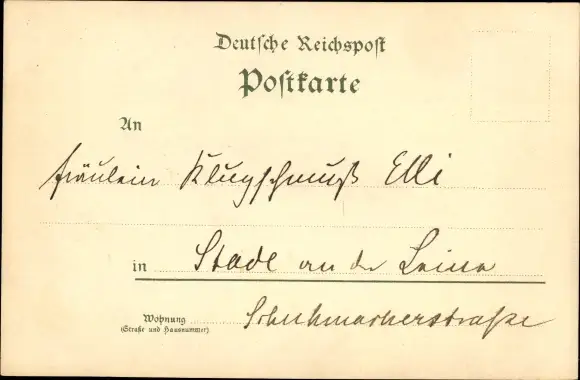 Deutsche Reichspost
Postkarte
An
Fräulein Klugschmuß Elli
in Stadt an der Leine
Wohnung Schuhmacherstraße
(Straße und Hausnummer)